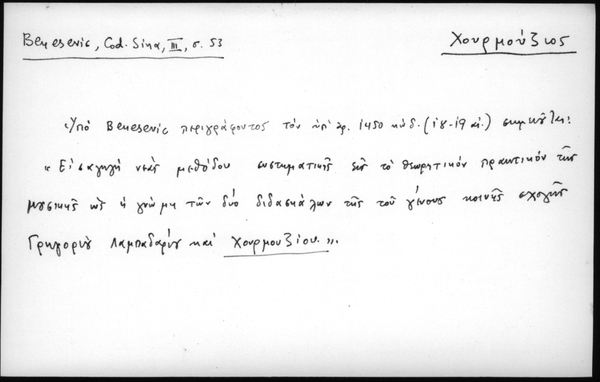 Benesevic, Cod. Sina, III, σ. 53
Χουρμούζιος
Ὑπό Benesevic περιγράφοντος τόν ὑπ' ἀρ. 1450 κώδ. (18-19 αἰ.) σημειοῦται:
« Εἰσαγωγή νέας μεθόδου συστηματικῆς εἰς τό θεωρητικόν πρακτικόν τῆς
μουσικῆς ὡς ἡ γνώμη τῶν δύο διδασκάλων τῆς τοῦ γένους κοινῆς σχολῆς
Γρηγορίου Λαμπαδαρίου καί Χουρμουζίου.».